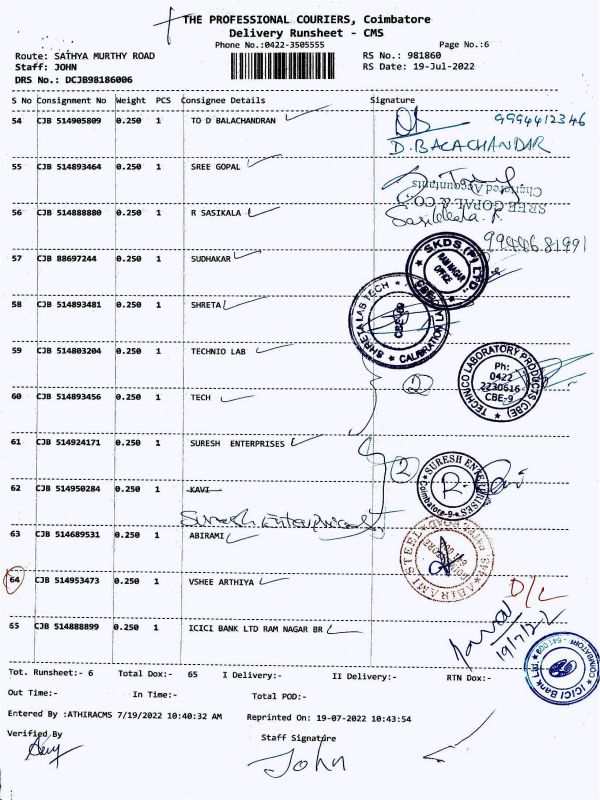 THE PROFESSIONAL COURIERS, Coimbatore
Delivery Runsheet - CMS
Phone No.:0422-3505555 Page No.:6
Route: SATHYA MURTHY ROAD RS No.: 981860
Staff: JOHN RS Date: 19-Jul-2022
DRS No.: DCJB98186006
S No Consignment No Weight PCS Consignee Details Signature
54 CJB 514905809 0.250 1 TO D BALACHANDRAN 9994412346
D. BALACHANDAR
55 CJB 514893464 0.250 1 SREE GOPAL
Chartered Accountants
SREE GOPAL & CO
56 CJB 514888880 0.250 1 R SASIKALA Sasikala. R
57 CJB 88697244 0.250 1 SUDHAKAR
SKDS (P) LTD
RAM NAGAR
OFFICE
58 CJB 514893481 0.250 1 SHRETA
SHRETA LAB TECH
CALIBRATION LAB
CBE-
59 CJB 514803204 0.250 1 TECHNIO LAB
TECHNICO LABORATORY PRODUCTS (CBE)
Ph:
0422
2230616
CBE-9
60 CJB 514893456 0.250 1 TECH 2
61 CJB 514924171 0.250 1 SURESH ENTERPRISES
2
SURESH ENTERPRISES
Coimbatore-9
62 CJB 514950284 0.250 1 KAVI
Suresh Enterprises
63 CJB 514689531 0.250 1 ABIRAMI
ABIRAMI STEEL
64 CJB 514953473 0.250 1 VSHEE ARTHIYA D/L
19/7/22
65 CJB 514888899 0.250 1 ICICI BANK LTD RAM NAGAR BR
ICICI Bank Ltd
COIMBATORE - 641 009
Tot. Runsheet:- 6 Total Dox:- 65 I Delivery:- II Delivery:- RTN Dox:-
Out Time:- In Time:- Total POD:-
Entered By :ATHIRACMS 7/19/2022 10:40:32 AM Reprinted On: 19-07-2022 10:43:54
Verified By Staff Signature
John